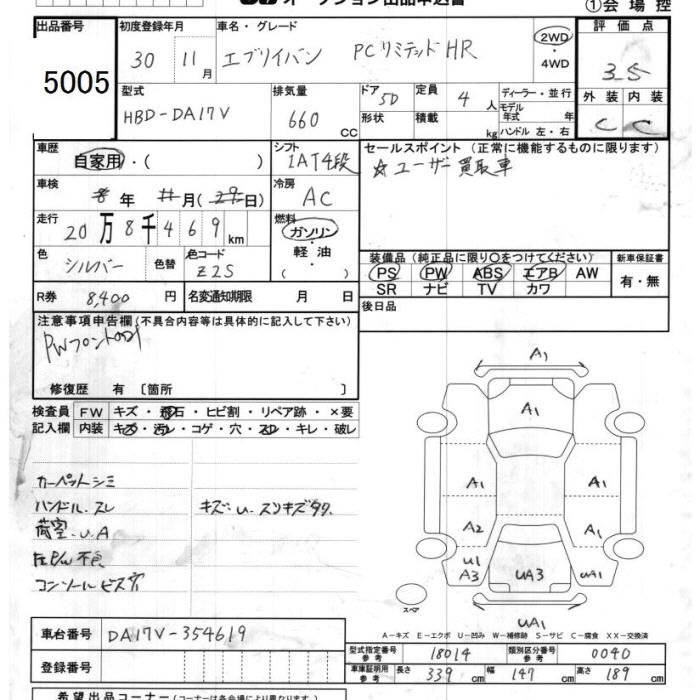 オークション出品申込書
①会場控
出品番号 初度登録年月 車名・グレード 評価点
5005 30 11月 エブリイバン PCリミテッド HR 2WD・4WD 3.5
外装 内装
C C
型式 排気量 ドア 定員 ディーラー・並行
HBD-DA17V 660cc 5D 4人 モデル年式 年
形状 積載 kg ハンドル 左・右
車歴 シフト セールスポイント (正常に機能するものに限ります)
自家用・( ) 1AT4段 ☆ユーザー買取車
車検 年 月( 日) 冷房 AC
走行 20万8千469km 燃料 ガソリン・軽油・( )
色 シルバー 色替 色コード Z2S
装備品 (純正品に限り〇をつけてください) 新車保証書
PS PW ABS エアB AW 有・無
SR ナビ TV カワ
R券 8,400円 名変通知期限 月 日 後日品
注意事項申告欄 (不具合内容等は具体的に記入して下さい)
修復歴 有 〔箇所 〕
検査員 FW キズ・飛石・ヒビ割・リペア跡・×要
記入欄 内装 キズ・汚レ・コゲ・穴・スレ・キレ・破レ
カーペットシミ
ハンドル.スレ キズ・U.スリキズ多々.
荷室.U.A
左P/W不良
コンソールビス穴
A1
A1
A1 A1
A2 A1
U1
A3 UA3 UA1
スペア
UA1
A－キズ E－エクボ U－凹み W－補修跡 S－サビ C－腐食 XX－交換済
車台番号 DA17V-354619
登録番号
型式指定番号 参考 18014 類別区分番号 参考 0040
車庫証明用 参考 長さ 339cm 幅 147cm 高さ 189cm
希望出品コーナー(コーナーは各会場により異なります)